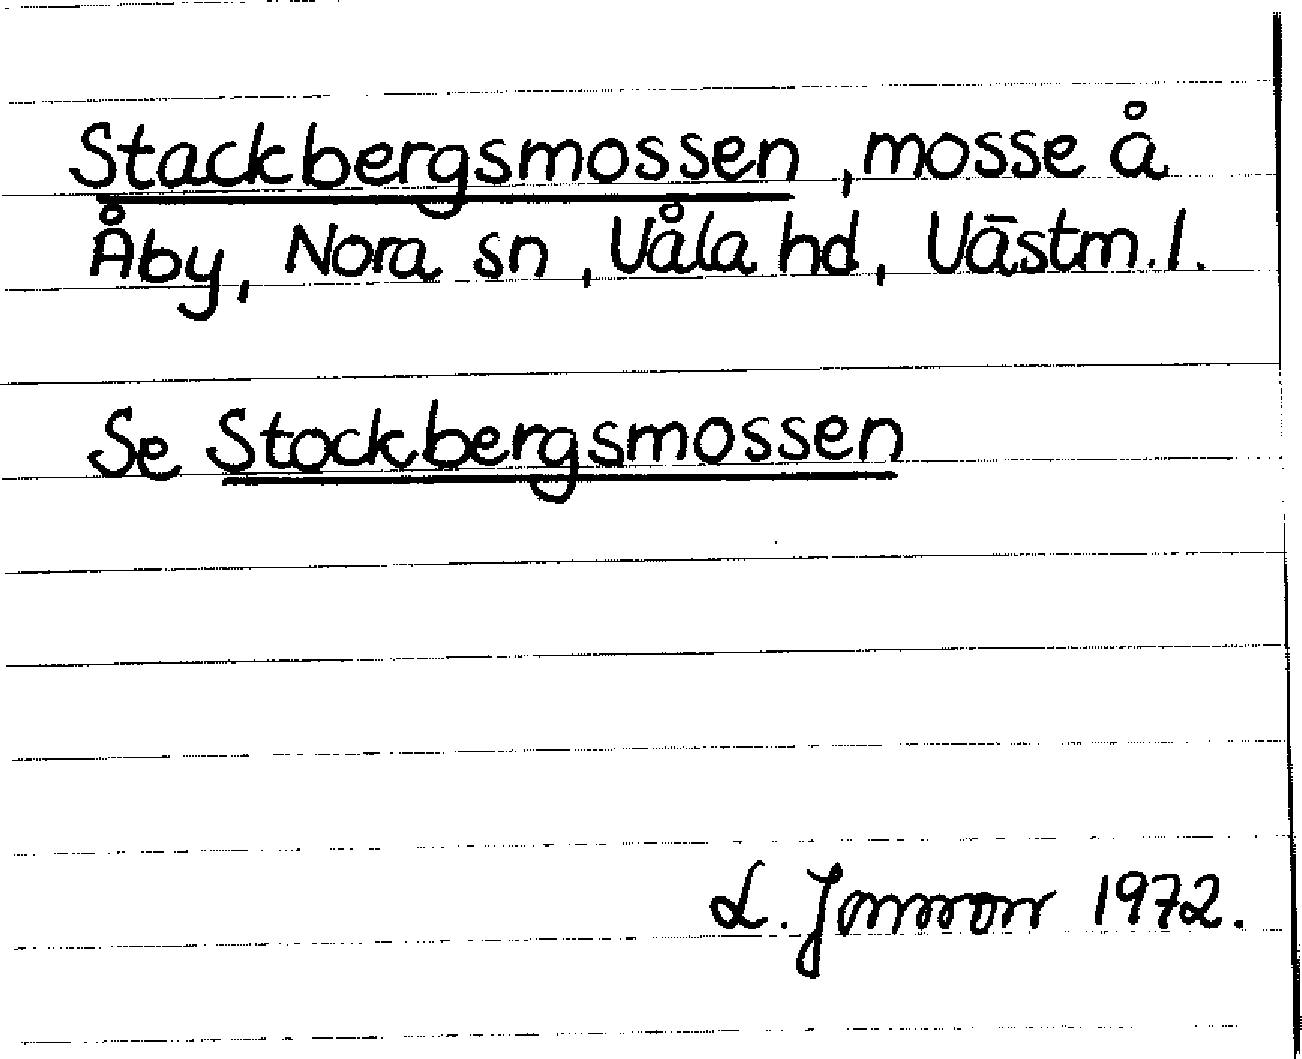 Stackbergsmossen, mosse å
Åby, Nora sn, Våla hd, Västm. l.
Se Stockbergsmossen
L. 1972.